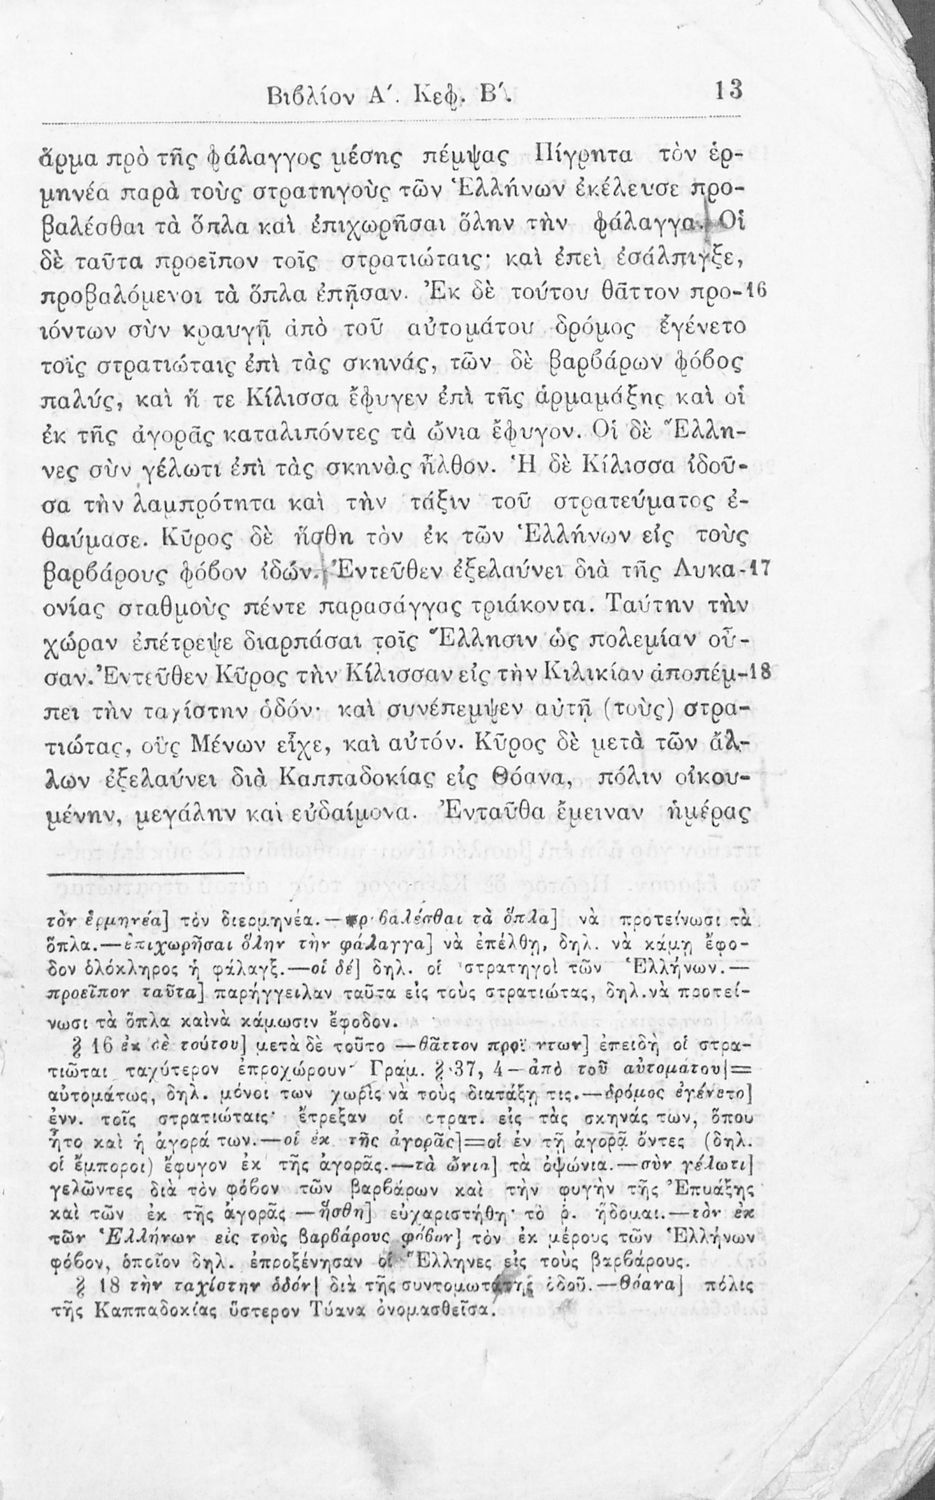 Βιβλίον Α΄. Κεφ. Β΄. 13
ἅρμα πρὸ τῆς φάλαγγος μέσης πέμψας Πίγρητα τὸν ἑρ-
μηνέα παρὰ τοὺς στρατηγοὺς τῶν Ἑλλήνων ἐκέλευσε προ-
βαλέσθαι τὰ ὅπλα καὶ ἐπιχωρῆσαι ὅλην τὴν φάλαγγα. Οἱ
δὲ ταῦτα προεῖπον τοῖς στρατιώταις· καὶ ἐπεὶ ἐσάλπιγξε,
προβαλόμενοι τὰ ὅπλα ἐπῇσαν. Ἐκ δὲ τούτου θᾶττον προ-16
ιόντων σὺν κραυγῇ ἀπὸ τοῦ αὐτομάτου δρόμος ἐγένετο
τοῖς στρατιώταις ἐπὶ τὰς σκηνάς, τῶν δὲ βαρβάρων φόβος
παλύς, καὶ ἥ τε Κίλισσα ἔφυγεν ἐπὶ τῆς ἁρμαμάξης καὶ οἱ
ἐκ τῆς ἀγορᾶς καταλιπόντες τὰ ὤνια ἔφυγον. Οἱ δὲ Ἕλλη-
νες σὺν γέλωτι ἐπὶ τὰς σκηνὰς ἦλθον. Ἡ δὲ Κίλισσα ἰδοῦ-
σα τὴν λαμπρότητα καὶ τὴν τάξιν τοῦ στρατεύματος ἐ-
θαύμασε. Κῦρος δὲ ἥσθη τὸν ἐκ τῶν Ἑλλήνων εἰς τοὺς
βαρβάρους φόβον ἰδών. Ἐντεῦθεν ἐξελαύνει διὰ τῆς Λυκα-17
ονίας σταθμοὺς πέντε παρασάγγας τριάκοντα. Ταύτην τὴν
χώραν ἐπέτρεψε διαρπάσαι τοῖς Ἕλλησιν ὡς πολεμίαν οὖ-
σαν. Ἐντεῦθεν Κῦρος τὴν Κίλισσαν εἰς τὴν Κιλικίαν ἀποπέμ-18
πει τὴν ταχίστην ὁδόν· καὶ συνέπεμψεν αὐτῇ (τοὺς) στρα-
τιώτας, οὓς Μένων εἶχε, καὶ αὐτόν. Κῦρος δὲ μετὰ τῶν ἄλ-
λων ἐξελαύνει διὰ Καππαδοκίας εἰς Θόανα, πόλιν οἰκου-
μένην, μεγάλην καὶ εὐδαίμονα. Ἐνταῦθα ἔμειναν ἡμέρας
τὸν ἑρμηνέα] τὸν διερμηνέα.—προβαλέσθαι τὰ ὅπλα] νὰ προτείνωσι τὰ
ὅπλα.—ἐπιχωρῆσαι ὅλην τὴν φάλαγγα] νὰ ἐπέλθῃ, δηλ. νὰ κάμῃ ἔφο-
δον ὁλόκληρος ἡ φάλαγξ.—οἱ δὲ] δηλ. οἱ στρατηγοὶ τῶν Ἑλλήνων.—
προεῖπον ταῦτα] παρήγγειλαν ταῦτα εἰς τοὺς στρατιώτας, δηλ.νὰ προτεί-
νωσι τὰ ὅπλα καὶνὰ κάμωσιν ἔφοδον.
§ 16 ἐκ δὲ τούτου] μετὰ δὲ τοῦτο —θᾶττον προϊόντων] ἐπειδὴ οἱ στρα-
τιῶται ταχύτερον ἐπροχώρουν· Γραμ. § 37, 4—ἀπὸ τοῦ αὐτομάτου]=
αὐτομάτως, δηλ. μόνοι των χωρὶς νὰ τοὺς διατάξῃ τις.—δρόμος ἐγένετο]
ἐνν. τοῖς στρατιώταις· ἔτρεξαν οἱ στρατ. εἰς τὰς σκηνάς των, ὅπου
ἦτο καὶ ἡ ἀγορά των.—οἱ ἐκ τῆς ἀγορᾶς]=οἱ ἐν τῇ ἀγορᾷ ὄντες (δηλ.
οἱ ἔμποροι) ἔφυγον ἐκ τῆς ἀγορᾶς.—τὰ ὤνια] τὰ ὀψώνια.—σὺν γέλωτι]
γελῶντες διὰ τὸν φόβον τῶν βαρβάρων καὶ τὴν φυγὴν τῆς Ἐπυάξης
καὶ τῶν ἐκ τῆς ἀγορᾶς —ἥσθη] εὐχαριστήθη· τὸ ῥ. ἥδομαι.—τὸν ἐκ
τῶν Ἑλλήνων εἰς τοὺς βαρβάρους φόβον] τὸν ἐκ μέρους τῶν Ἑλλήνων
φόβον, ὁποῖον δηλ. ἐπροξένησαν οἱ Ἕλληνες εἰς τοὺς βαρβάρους.
§ 18 τὴν ταχίστην ὁδόν] διὰ τῆς συντομωτάτης ὁδοῦ.—Θόανα] πόλις
τῆς Καππαδοκίας ὕστερον Τύανα ὀνομασθεῖσα.